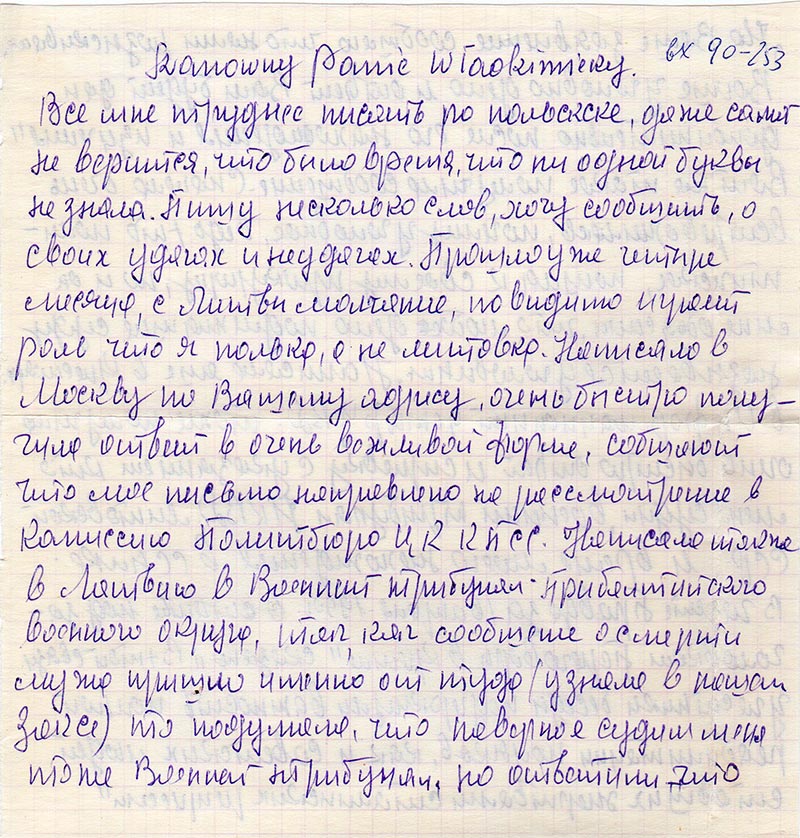 вх 90-253
Szanowny Panie Włodzimierzy.
Все мне труднее писать po польскске, даже самой
не верится, что было время, что ни одной буквы
не знала. Пишу несколько слов, хочу сообщить, о
своих удачах и неудачах. Прошло уже четире
месяца, с Литвы молчание, по видимо играет
роль что я полька, а не литовка. Написала в
Москву по Вашему адрису, очень быстро полу-
чила ответ в очень вежливой форме, собщают
что мое письмо направлено на рассмотрение в
Комиссию Политбюро ЦК КПСС. Написала также
в Латвию в Военной трибунал Прибалтийского
военного округа, так как сообщение о смерти
мужа пришло именно от туда (узнала в нашем
Загсе) то подумала, что наверное судил меня
тоже Военной трибунал, но ответили, что